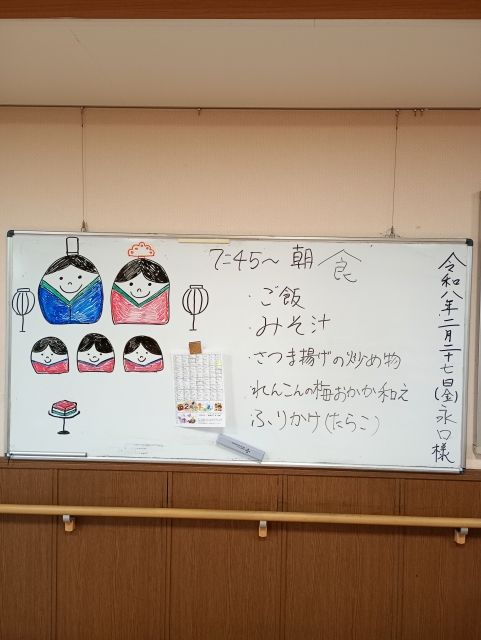 令和八年二月二十七日(金)永口様
7:45〜 朝食
・ご飯
・みそ汁
・さつま揚げの炒め物
・れんこんの梅おかか和え
・ふりかけ(たらこ)